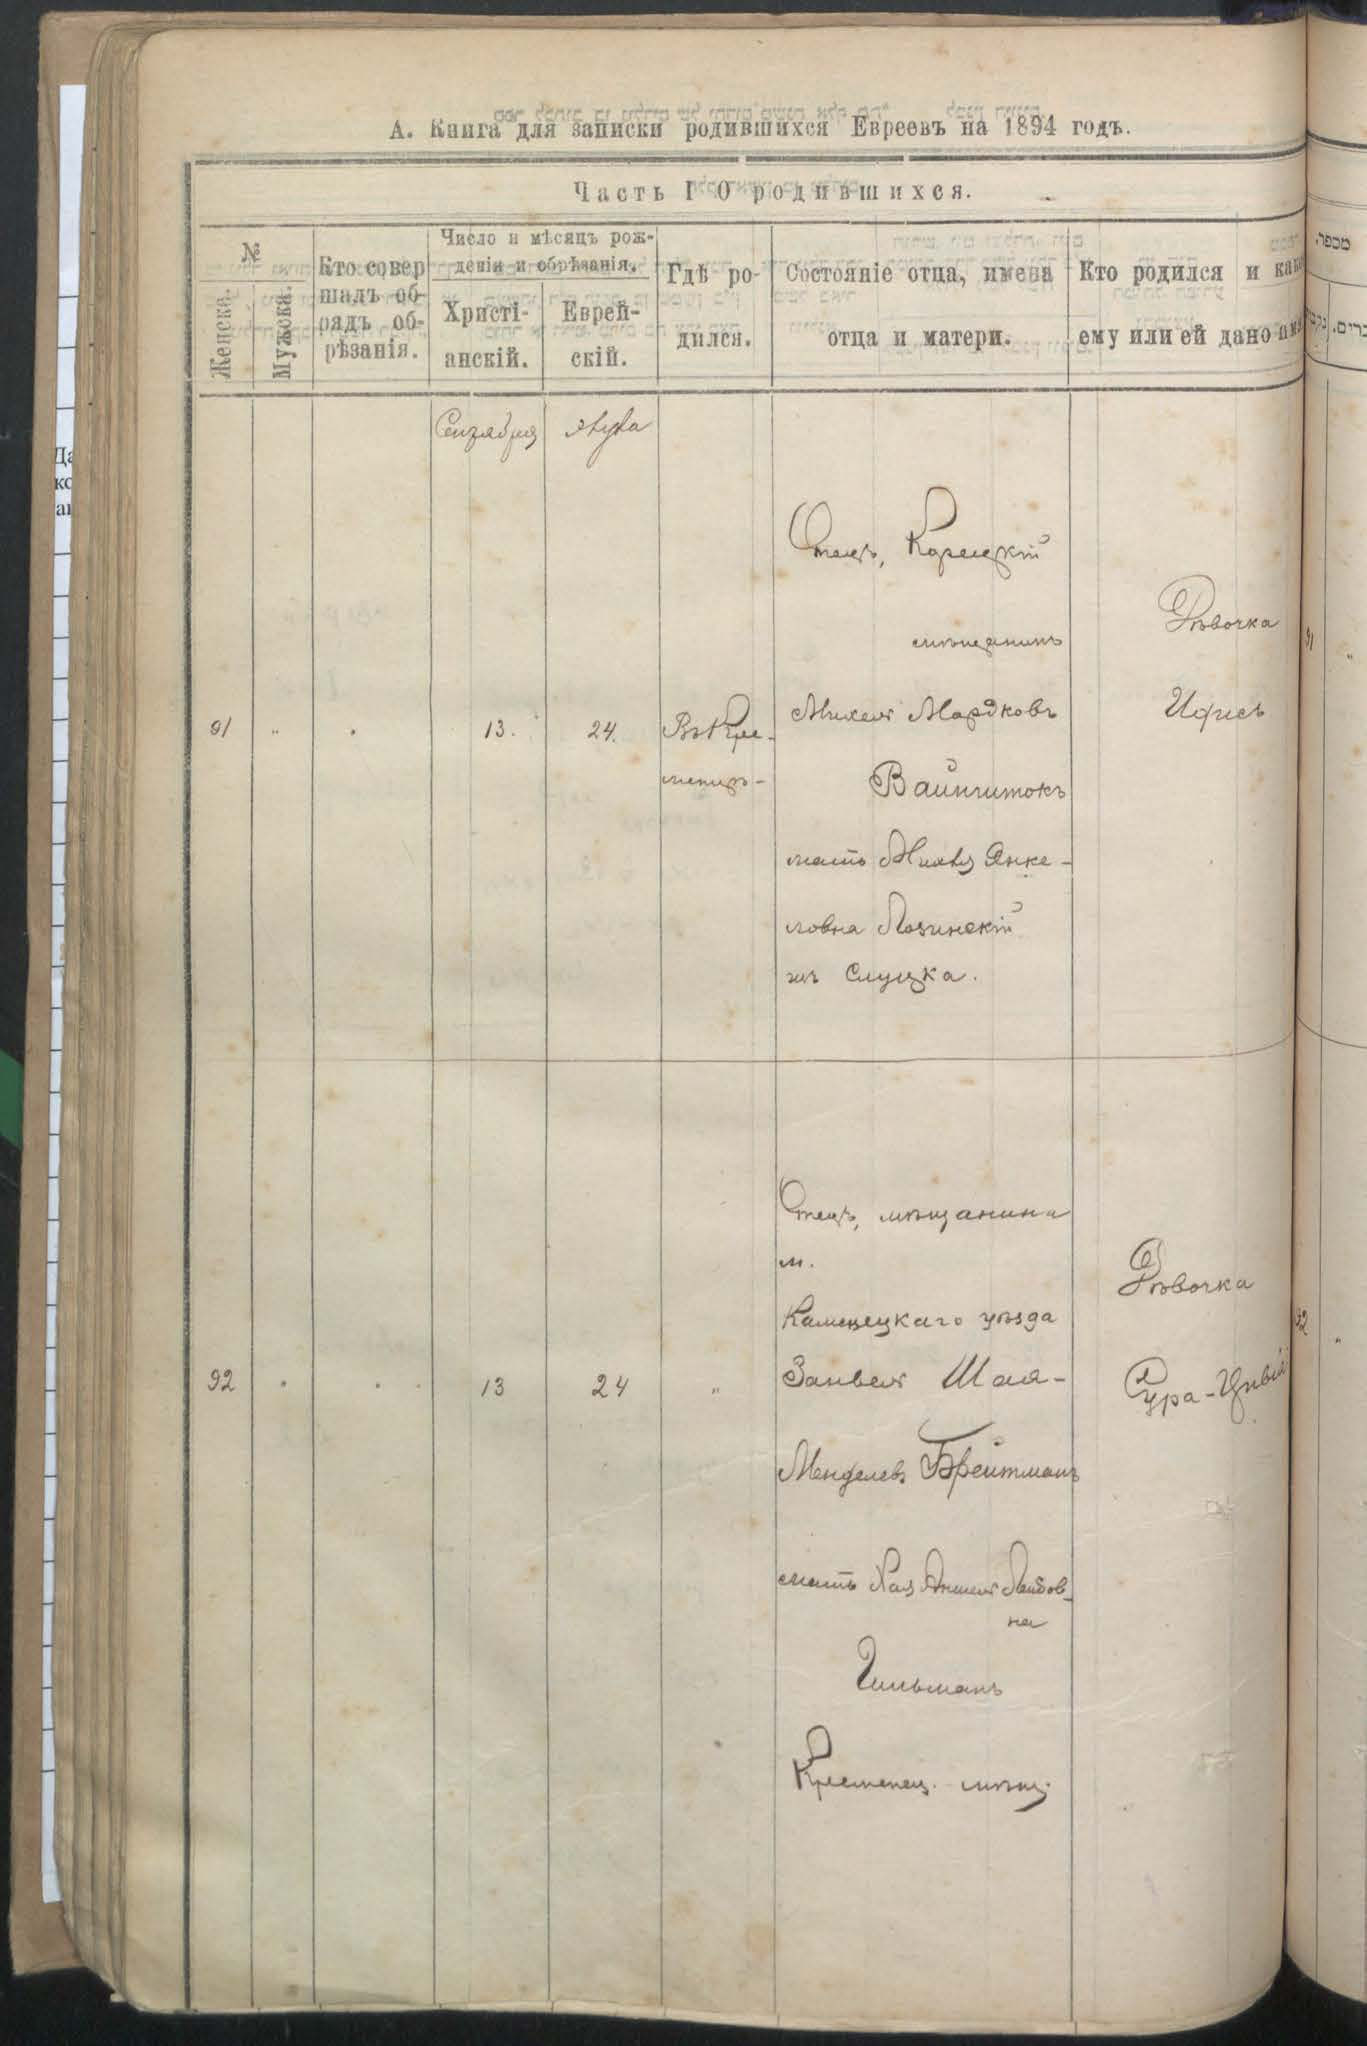 А. Книга для записки родившихся Евреевъ на 1894 годъ.
Часть I О родившихся.
№
Женска.
Мужска.
Кто совер
шалъ об-
рядъ об-
рѣзанія.
Число и мѣсяцъ рож-
денія и обрѣзанія.
Христі-
анскій.
Еврей-
скій.
Гдѣ ро-
дился.
Состояніе отца, имена
отца и матери.
Кто родился и како
ему или ей дано има
Сентября
91
13.
24.
Въ Кре-
менцѣ-
Отецъ, Корецкій
мѣщанинъ
Михель Мордковъ
Вайнштокъ
мать Янке-
ловна Лозинскій
изъ Слуцка.
Дѣвочка
92
13
24
"
Отецъ, мѣщанинъ
м.
Каменецкаго уѣзда
Занвель Шая-
Менделевъ Брейтманъ
мать Хая Лейбов-
на
Гильманъ
Кременец. мѣщ.
Дѣвочка
מספר.
91
92